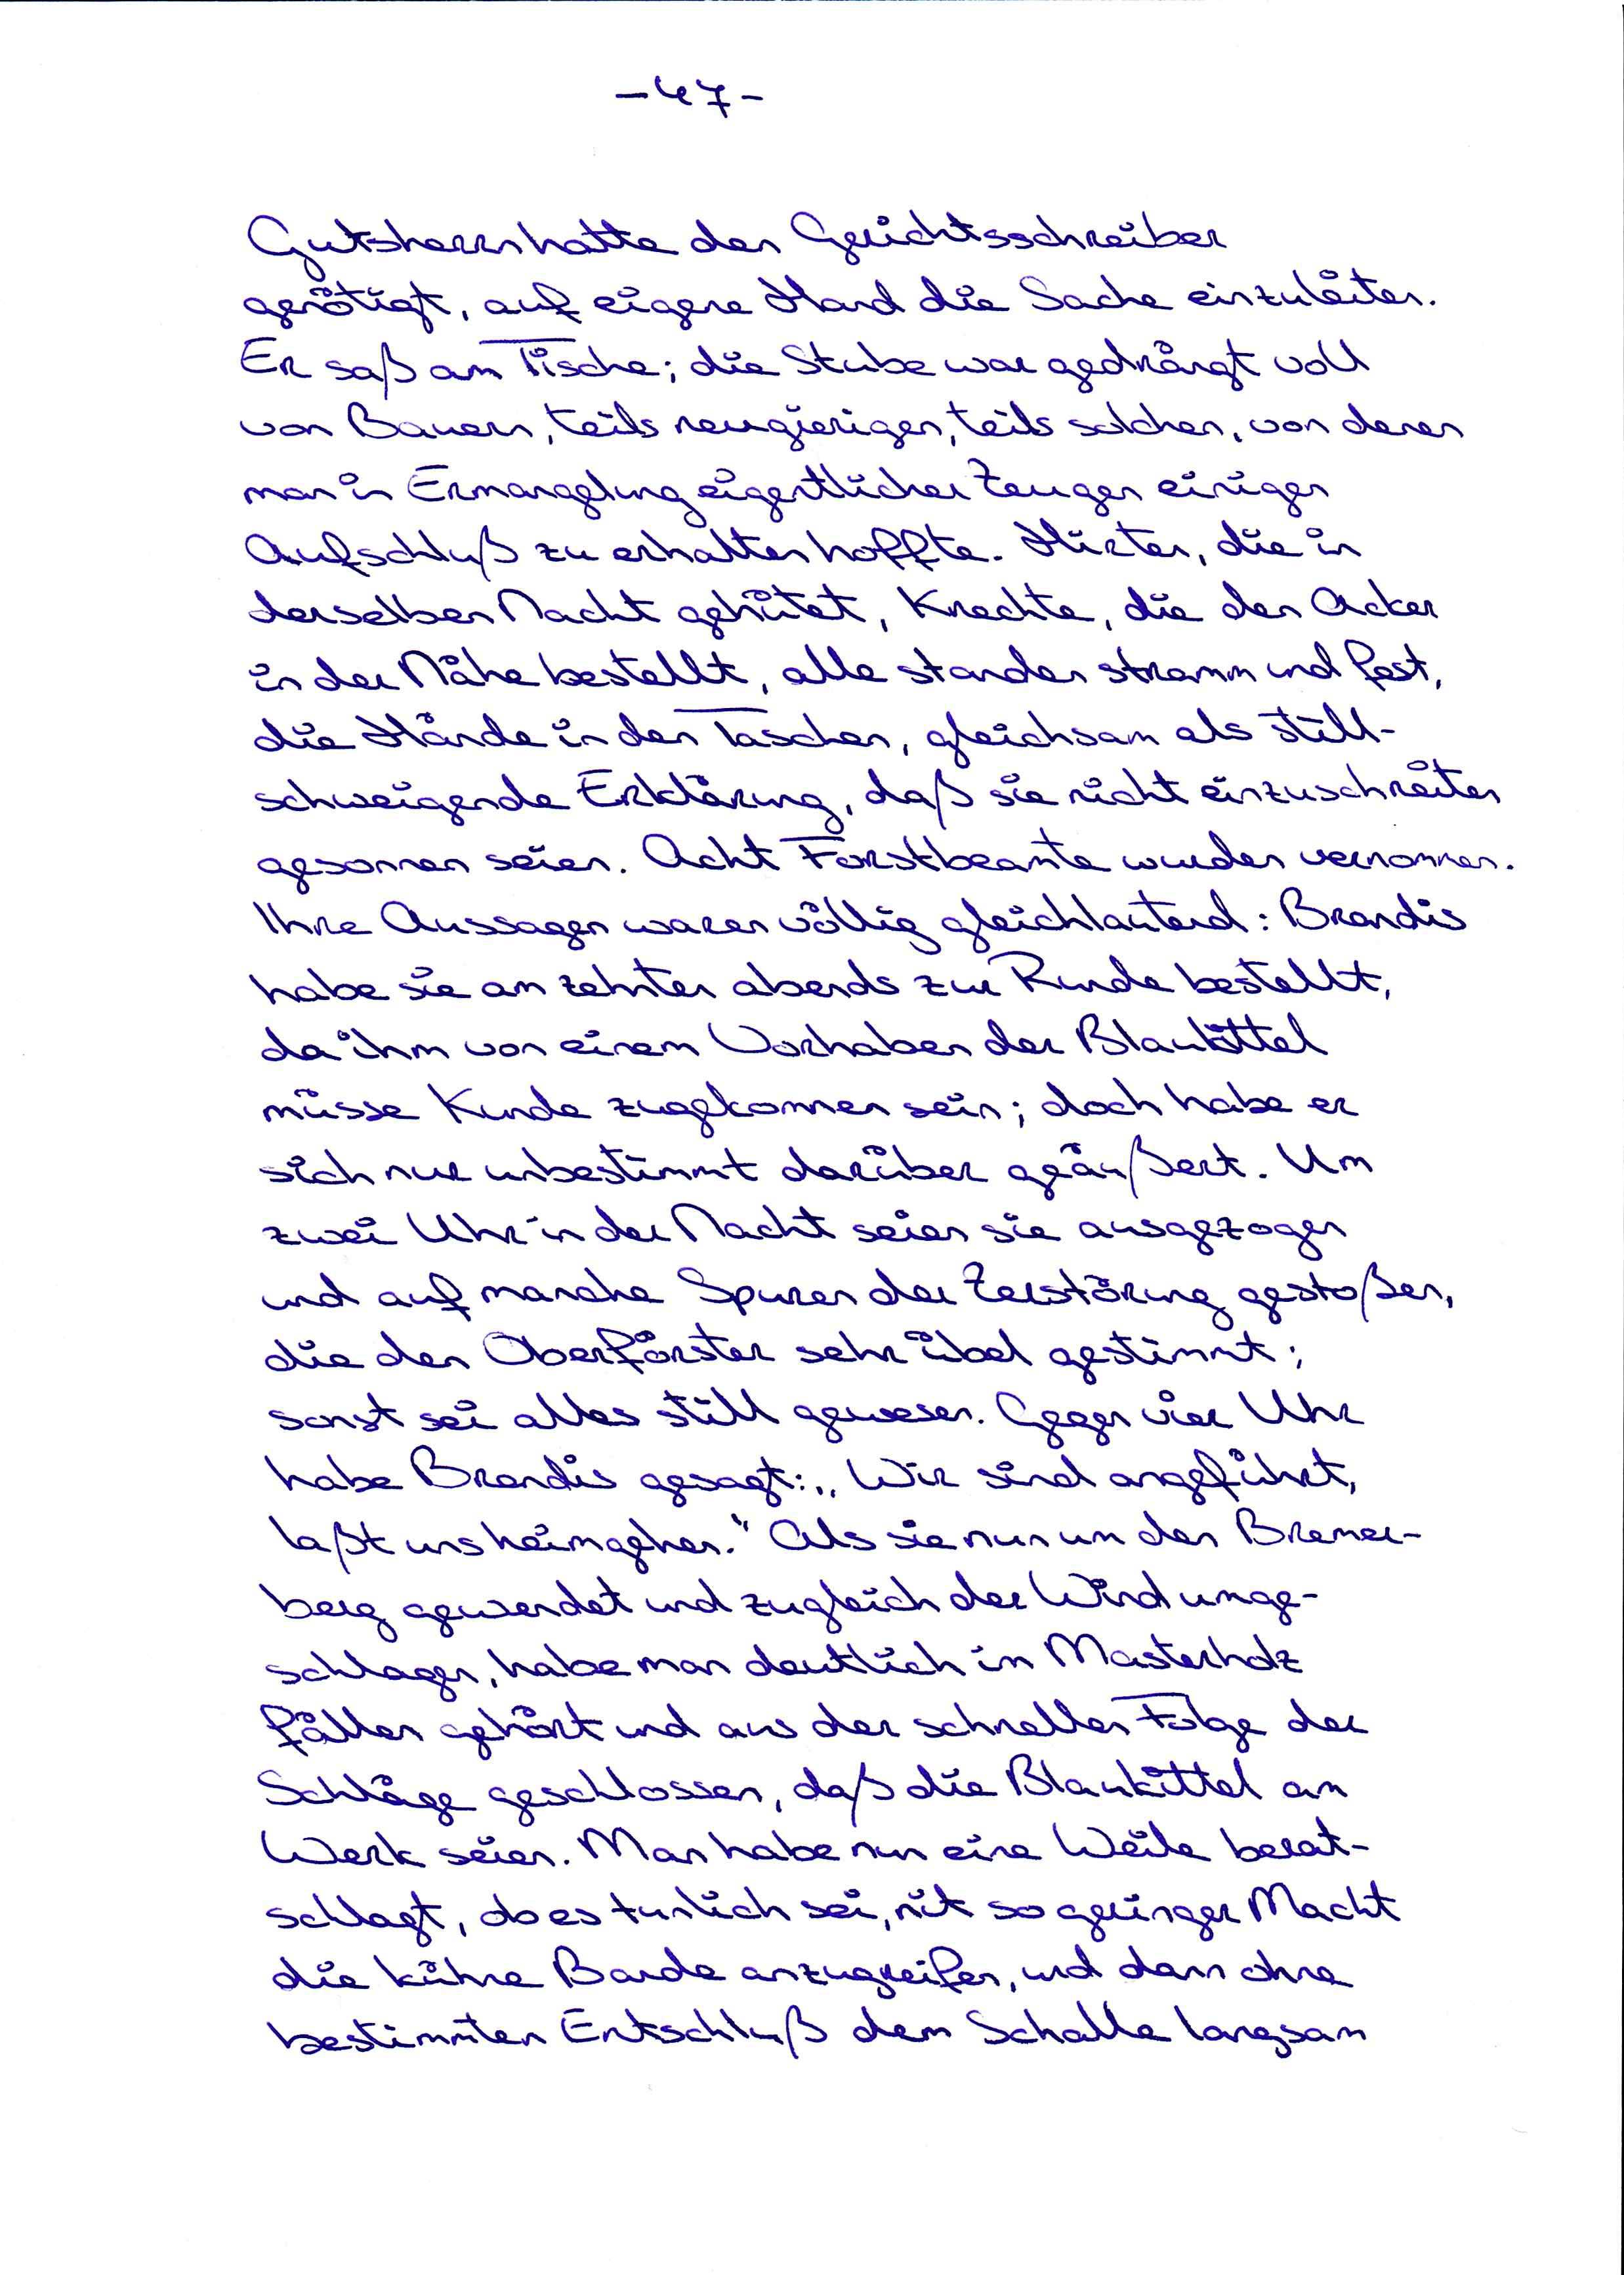 -47-
Gutsherrn hatte den Gerichtsschreiber
genötigt, auf eigene Hand die Sache einzuleiten.
Er saß am Tische; die Stube war gedrängt voll
von Bauern, teils neugierigen, teils solchen, von denen
man in Ermangelung eigentlicher Zeugen einigen
Aufschluß zu erhalten hoffte. Hirten, die in
derselben Nacht gehütet, Knechte, die den Acker
in der Nähe bestellt, alle standen stramm und fest,
die Hände in den Taschen, gleichsam als still-
schweigende Erklärung, daß sie nicht einzuschreiten
gesonnen seien. Acht Forstbeamte wurden vernommen.
Ihre Aussagen waren völlig gleichlautend: Brandis
habe sie am zehnten abends zur Runde bestellt,
da ihm von einem Vorhaben der Blaukittel
müsse Kunde zugekommen sein; doch habe er
sich nur unbestimmt darüber geäußert. Um
zwei Uhr in der Nacht seien sie ausgezogen
und auf manche Spuren der Zerstörung gestoßen,
die den Oberförster sehr übel gestimmt;
sonst sei alles still gewesen. Gegen vier Uhr
habe Brandis gesagt: „Wir sind angeführt,
laßt uns heimgehen." Als sie nun um den Bremer-
berg gewendet und zugleich der Wind umge-
schlagen, habe man deutlich im Masterholz
fällen gehört und aus der schnellen Folge der
Schläge geschlossen, daß die Blaukittel am
Werk seien. Man habe nun eine Weile berat-
schlagt, ob es tunlich sei, mit so geringer Macht
die kühne Bande anzugreifen, und dann ohne
bestimmten Entschluß dem Schalle langsam